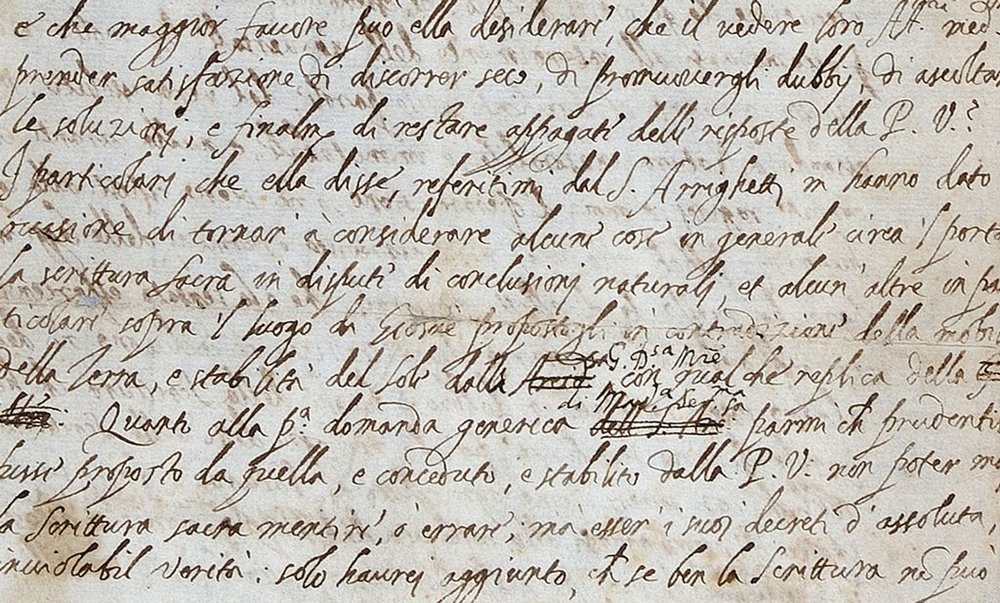 e che maggior favore può ella desiderare, che il vedere loro AA.
prender satisfazione di discorrer seco, di promuovergli dubbij, di ascolta
le soluzioni, e finalm. di restare appagate delle risposte della P. V.?
I particolari che ella disse, referitimi dal S. Arrighetti m hanno dato
occasione di tornar à considerare alcune cose in generale circa 'l porta
la scrittura sacra in dispute di conclusioni naturali, et alcun' altre in par
ticolare sopra 'l luogo di Giosuè propostogli in contradizione della mobi
della Terra, e stabilità del Sole dalla G. D.sa Mre con qualche replica della
di Mma. Ser.ma
Quanto alla p.a domanda generica parmi ch prudentis
sime proposto da quella, e conceduto, e stabilito dalla P. V. non poter ma
la Scrittura sacra mentire, ò errare, mà esser i suoi decreti d'assoluta,
inviolabil verità: solo haurei aggiunto, ch se ben la Scrittura nō può